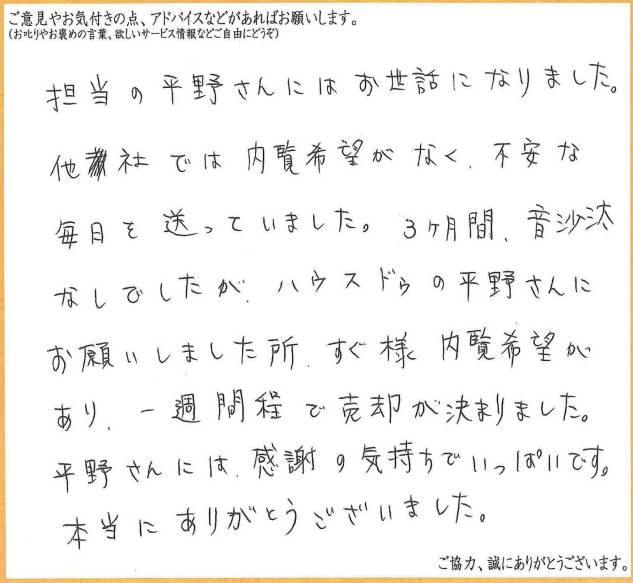 ご意見やお気付きの点、アドバイスなどがあればお願いします。
(お叱りやお褒めの言葉、欲しいサービス情報などご自由にどうぞ)
担当の平野さんにはお世話になりました。
他社では内覧希望がなく、不安な
毎日を送っていました。3ヶ月間、音沙汰
なしでしたが、ハウスドゥの平野さんに
お願いしました所、すぐ様内覧希望が
あり、一週間程で売却が決まりました。
平野さんには、感謝の気持ちでいっぱいです。
本当にありがとうございました。
ご協力、誠にありがとうございます。